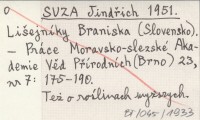 o SUZA Jindřich 1951.
Lišejníky Braniska (Slovensko).
– Práce Moravsko-slezské Aka-
demie Věd Přírodních (Brno) 23,
nr 7: 175-190.
Též o roślinach wyższych.
/1933